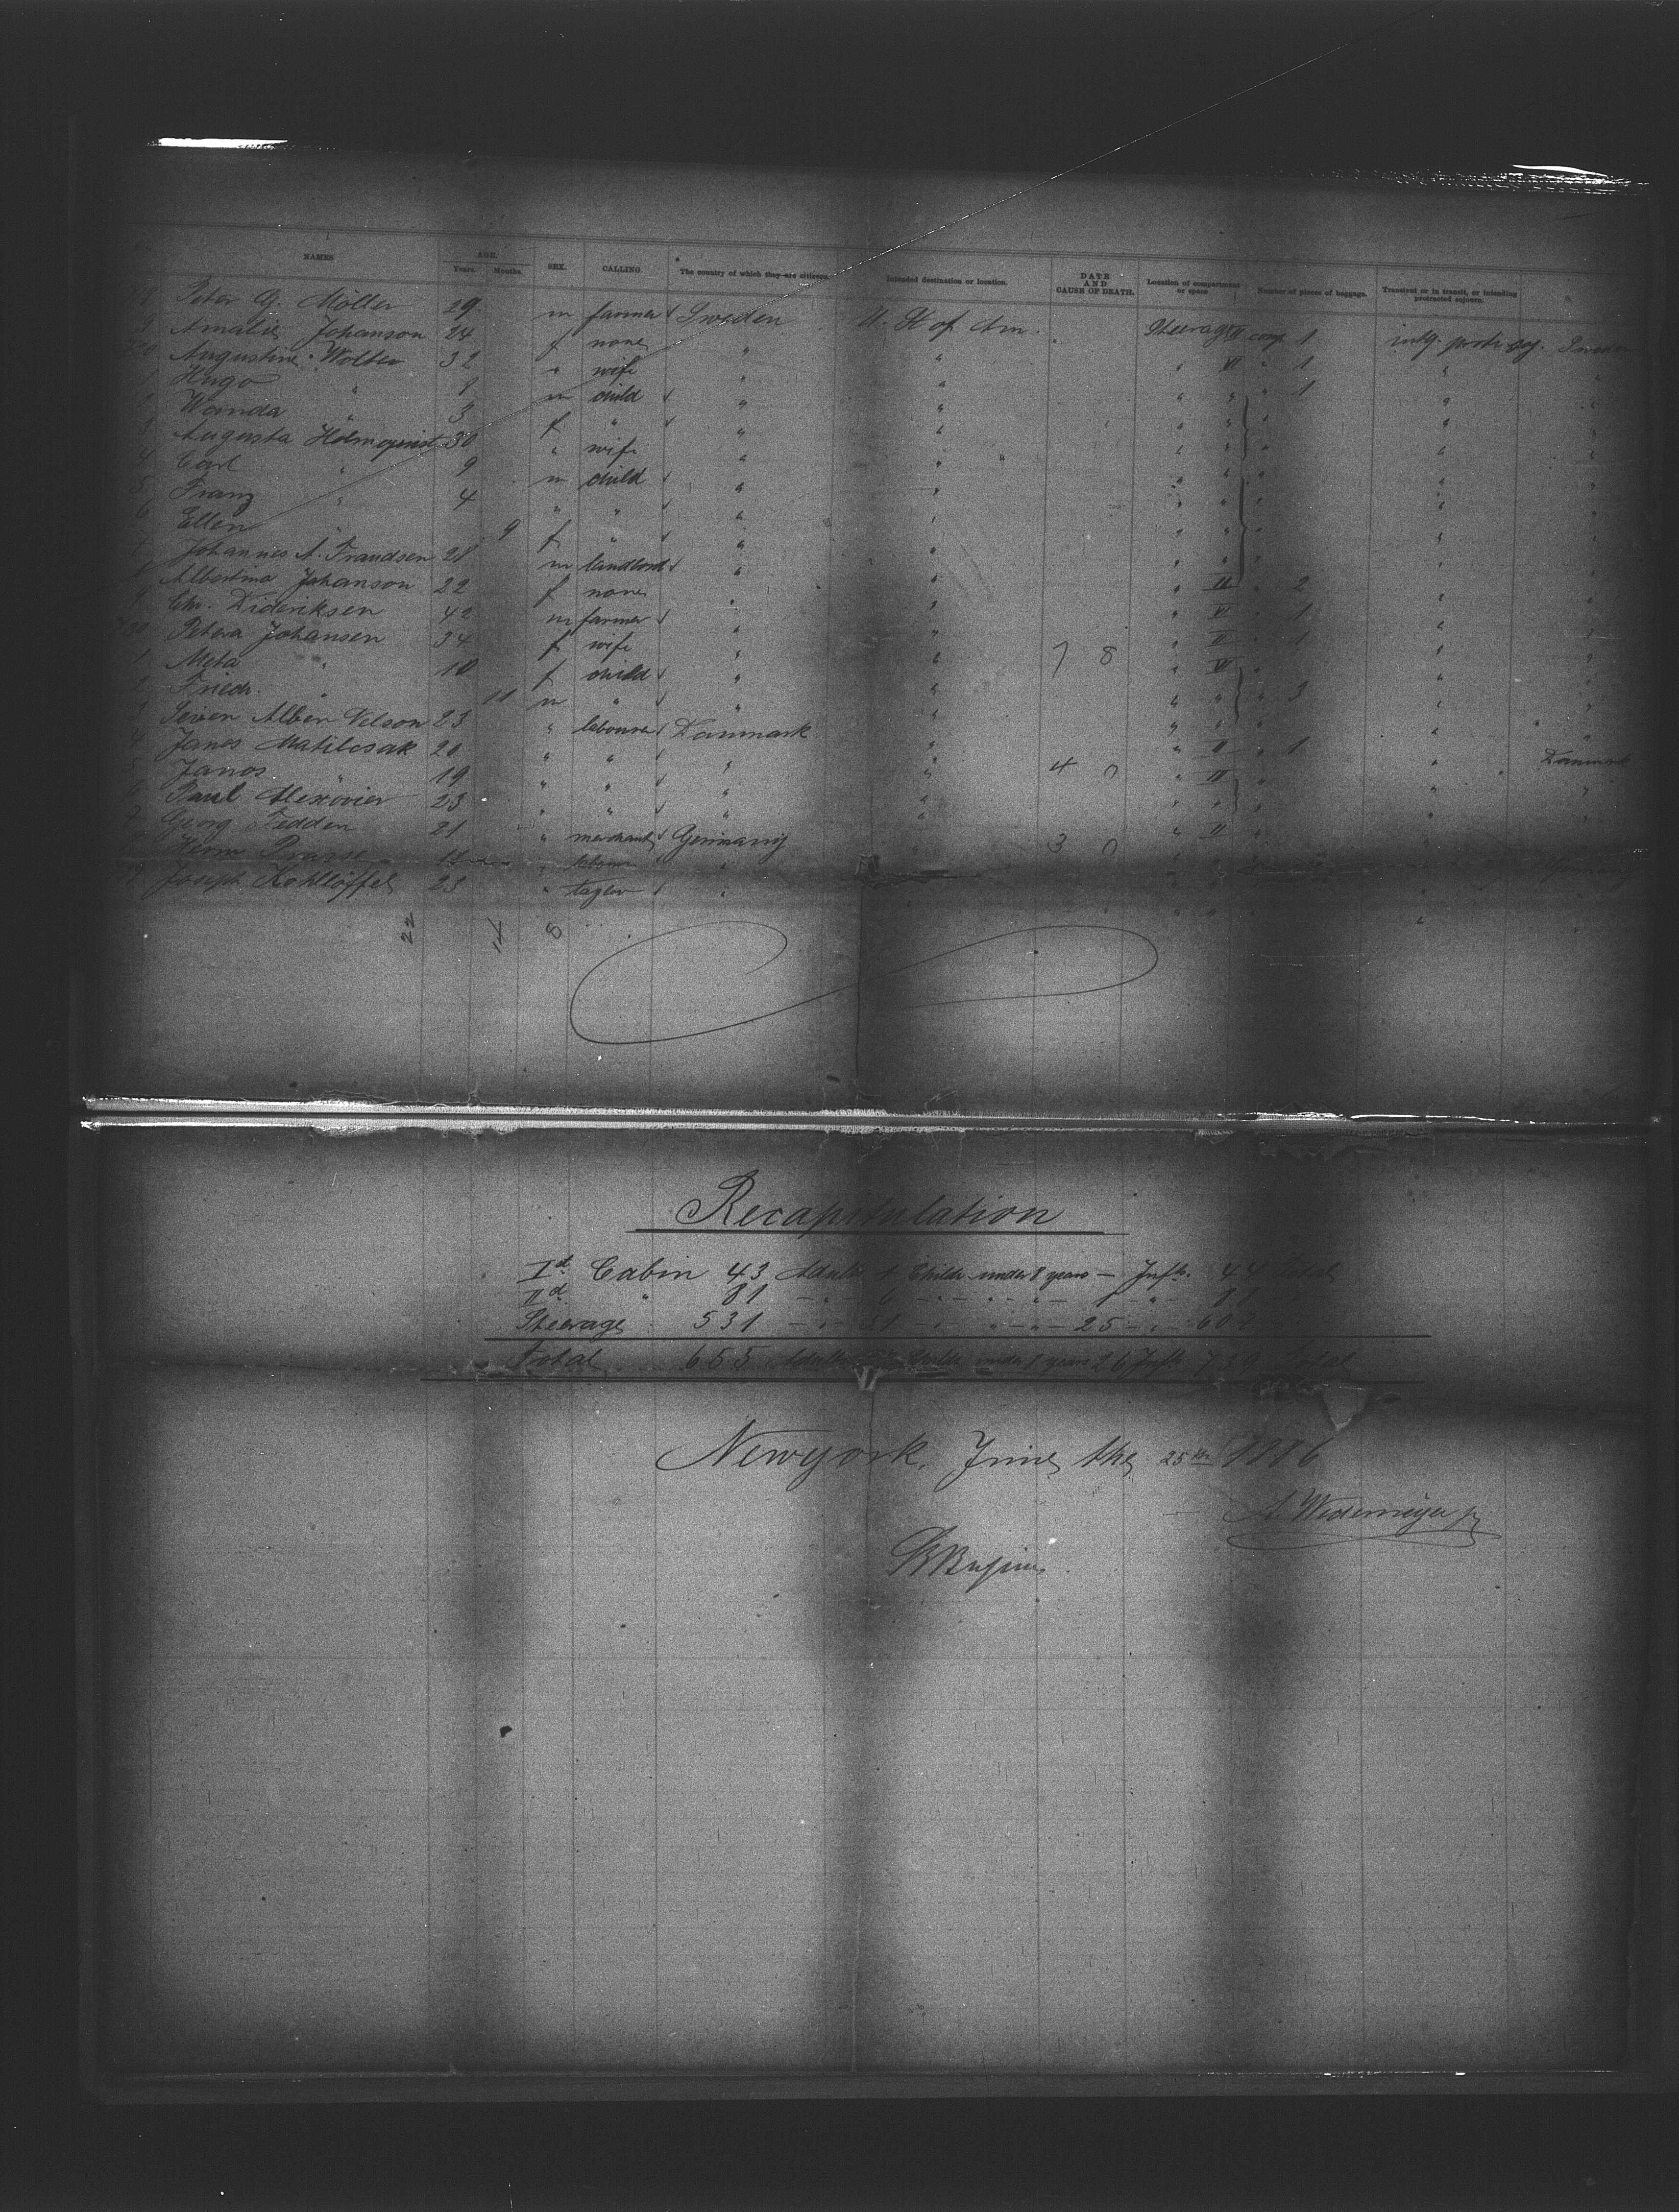 NAMES AGE. Years. Months. SEX. CALLING. The country of which they are citizens. Intended destination or location. DATE AND CAUSE OF DEATH. Location of compartment or space Number of pieces of baggage. Transient or in transit, or intending protracted sojourn.
Peter G. Möller 29 m farmer Sweden U. St of Am. Steerage II comp. 1 intg. protr soj. Sweden
9 Amalie Johanson 24 f none " " " VI " 1 " "
Augustine Wolter 32 " wife " " " " " 1 " "
1 Hugo " 9 m child " " " " " " "
Wanda " 3 f " " " " " " " "
3 Augusta Holmquist 30 " wife " " " " " "
4 Carl " 9 m child " " " " " " "
5 Franz " 4 " " " " " " " " "
6 Ellen " 9 f " " " " " " " "
Johannes A. Frandsen 28 m landlord " " " II " 2 " "
Albertina Johanson 22 f none " " " VI " 1 " "
Chr. Dideriksen 42 m farmer " " " II " 1 " "
Petera Johansen 34 f wife " " 7 8 " VI " " "
1 Meta " 10 f child " " " " " 3 " "
2 Friedr. " 11 m " " " " " " "
3 Seiven Alben Nelson 23 " labourer Danmark " " II " 1 " Danmark
4 Janos Matilcsak 20 " " " " 4 0 " II " " "
5 Janos " 19 " " " " " " " "
6 Paul Alexovier 23 " " " "
7 Georg Fedden 21 " merchant Germany " 3 0 " II " "
Herm " "
Joseph Kohllöffel 23 " taylor " " " "
22 14 8
Recapitulation
Id. Cabin 43 Adults 1 Childr. under 8 years — Infts. 44 Total
IId. " 81 — " — 6 — " — " — " — 1 " —
Steerage 531 — " — 51 — " — " — " — 25 — " — 607
Total 655 Adults Childr under 8 years 26 Infts 739 Total
Newyork, June the 25th 1886
A. Wedemeyer jr